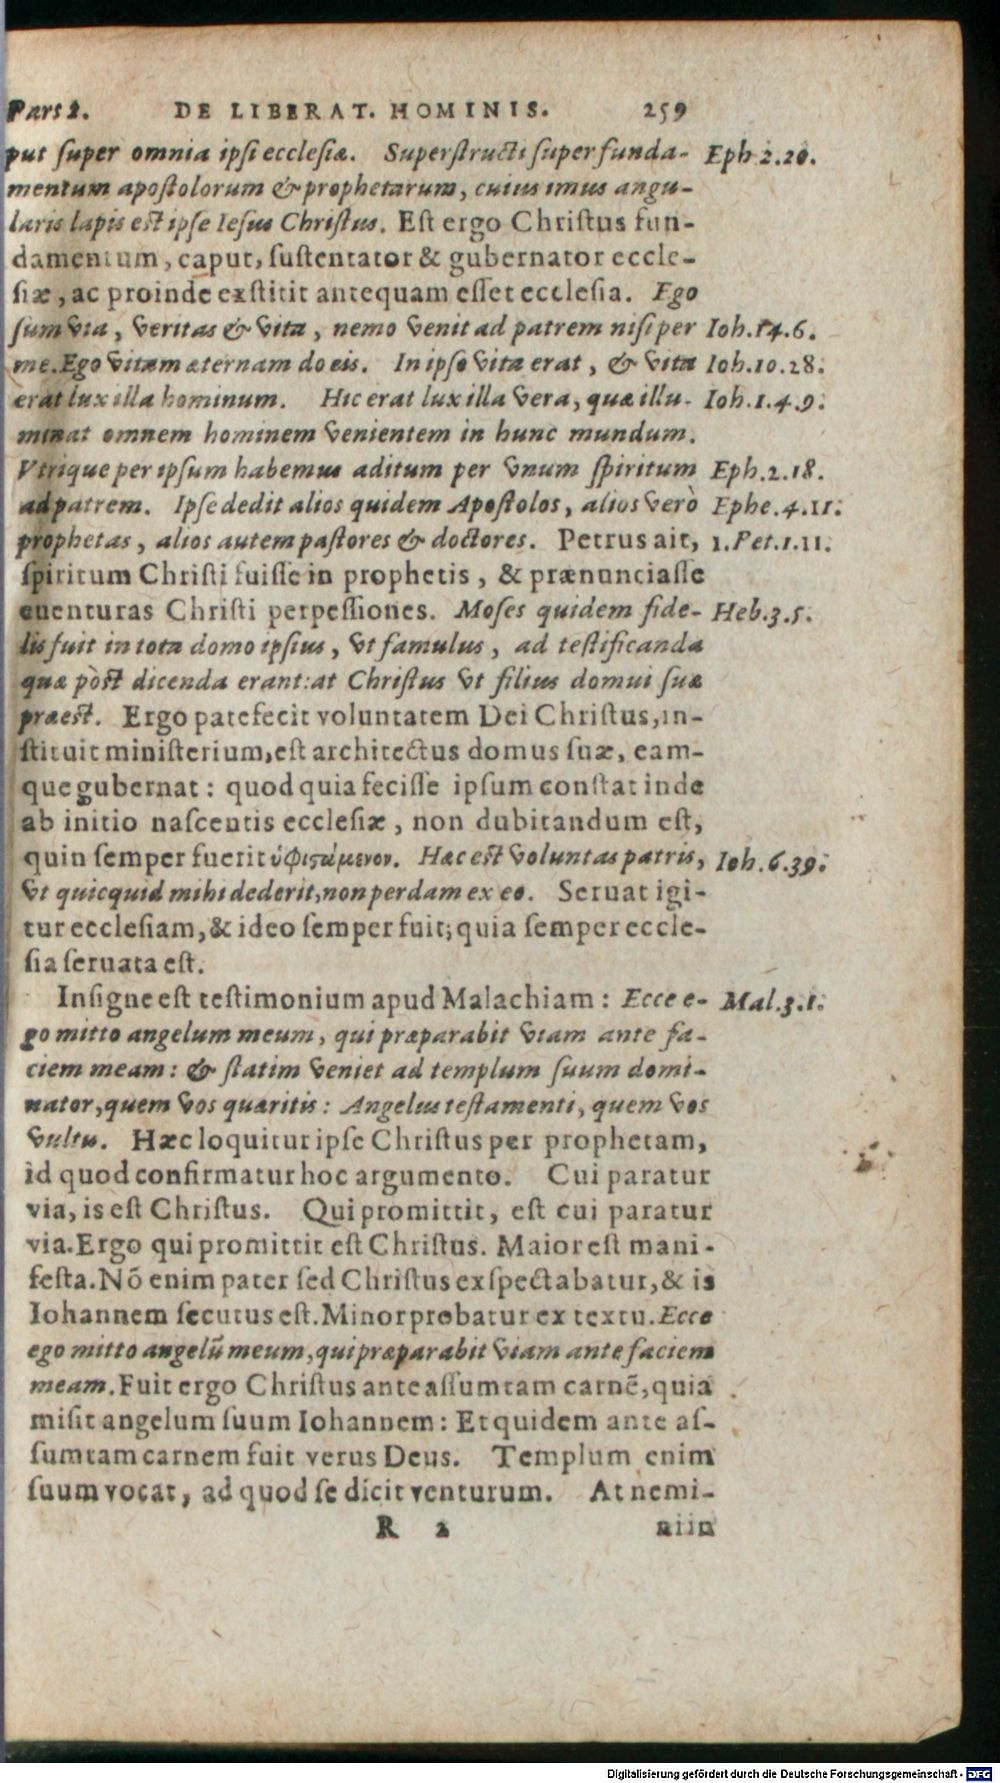 Pars 2. DE LIBERAT. HOMINIS. 259
put super omnia ipsi ecclesiæ. Superstructi super funda- Eph 2.20.
mentum apostolorum & prophetarum, cuius imus angu-
laris lapis est ipse Iesus Christus. Est ergo Christus fun-
damentum, caput, sustentator & gubernator eccle-
siæ, ac proinde exstitit antequam esset ecclesia. Ego
sum via, veritas & vita, nemo venit ad patrem nisi per Ioh.14.6.
me. Ego vitam æternam do eis. In ipso vita erat, & vita Ioh.10.28.
erat lux illa hominum. Hic erat lux illa vera, quæ illu- Ioh.1.4.9.
minat omnem hominem venientem in hunc mundum.
Vtrique per ipsum habemus aditum per vnum spiritum Eph.2.18.
ad patrem. Ipse dedit alios quidem Apostolos, alios verò Ephe.4.11.
prophetas, alios autem pastores & doctores. Petrus ait, 1.Pet.1.11.
spiritum Christi fuisse in prophetis, & prænunciasse
euenturas Christi perpessiones. Moses quidem fide- Heb.3.5.
lis fuit in tota domo ipsius, vt famulus, ad testificanda
quæ pòst dicenda erant: at Christus vt filius domui suæ
præest. Ergo patefecit voluntatem Dei Christus, in-
stituit ministerium, est architectus domus suæ, eam-
que gubernat: quod quia fecisse ipsum constat inde
ab initio nascentis ecclesiæ, non dubitandum est,
quin semper fuerit ὑφιστάμενον. Hæc est voluntas patris, Ioh.6.39.
vt quicquid mihi dederit, non perdam ex eo. Seruat igi-
tur ecclesiam, & ideo semper fuit; quia semper eccle-
sia seruata est.
Insigne est testimonium apud Malachiam: Ecce e- Mal.3.1.
go mitto angelum meum, qui præparabit viam ante fa-
ciem meam: & statim veniet ad templum suum domi-
nator, quem vos quæritis: Angelus testamenti, quem vos
vultis. Hæc loquitur ipse Christus per prophetam,
id quod confirmatur hoc argumento. Cui paratur
via, is est Christus. Qui promittit, est cui paratur
via. Ergo qui promittit est Christus. Maior est mani-
festa. Nō enim pater sed Christus exspectabatur, & is
Iohannem secutus est. Minor probatur ex textu. Ecce
ego mitto angelū meum, qui præparabit viam ante faciem
meam. Fuit ergo Christus ante assumtam carnē, quia
misit angelum suum Iohannem: Et quidem ante as-
sumtam carnem fuit verus Deus. Templum enim
suum vocat, ad quod se dicit venturum. At nemi-
R 2 niin
Digitalisierung gefördert durch die Deutsche Forschungsgemeinschaft - DFG